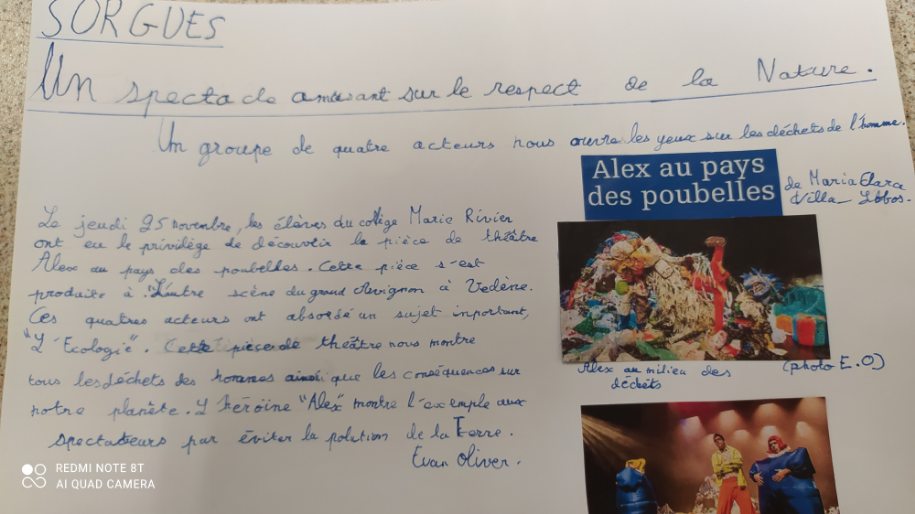 SORGUES
Un spectacle amusant sur le respect de la Nature.
Un groupe de quatre acteurs nous ouvre les yeux sur les déchets de l'homme.
Alex au pays
des poubelles
de Maria Clara
Villa Lobos.
Le jeudi 25 novembre, les élèves du collège Marie Rivier
ont eu le privilège de découvrir la pièce de théâtre
Alex au pays des poubelles. Cette pièce s'est
produite à L'autre scène du grand Avignon à Vedène.
Ces quatres acteurs ont absordé un sujet important,
"L'Ecologie". Cette pièce de théâtre nous montre
tous les déchets des hommes ainsi que les conséquences sur
notre planète. L'héroïne "Alex" montre l'exemple aux
spectateurs par éviter la polution de la Terre.
Evan Oliver.
Alex au milieu des
déchets
(photo E.O)
REDMI NOTE 8T
AI QUAD CAMERA